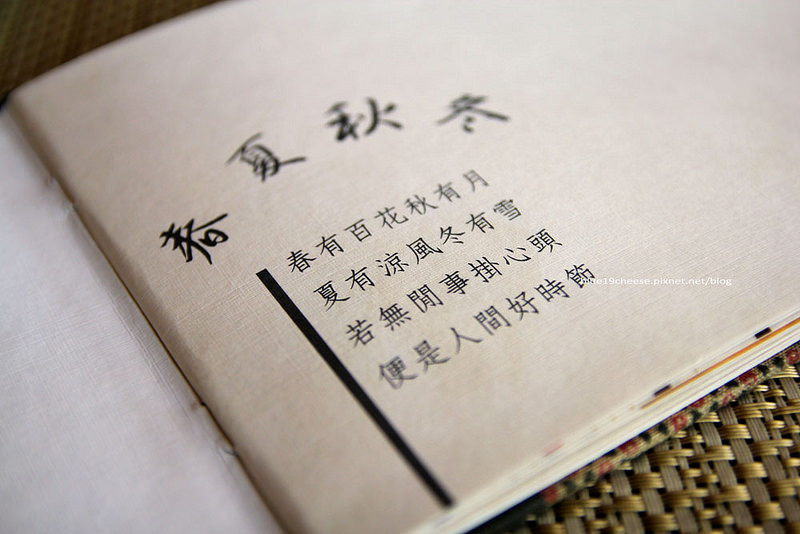 春夏秋冬
春有百花秋有月
夏有涼風冬有雪
若無閒事掛心頭
便是人間好時節
nine19cheese.pixnet.net/blog